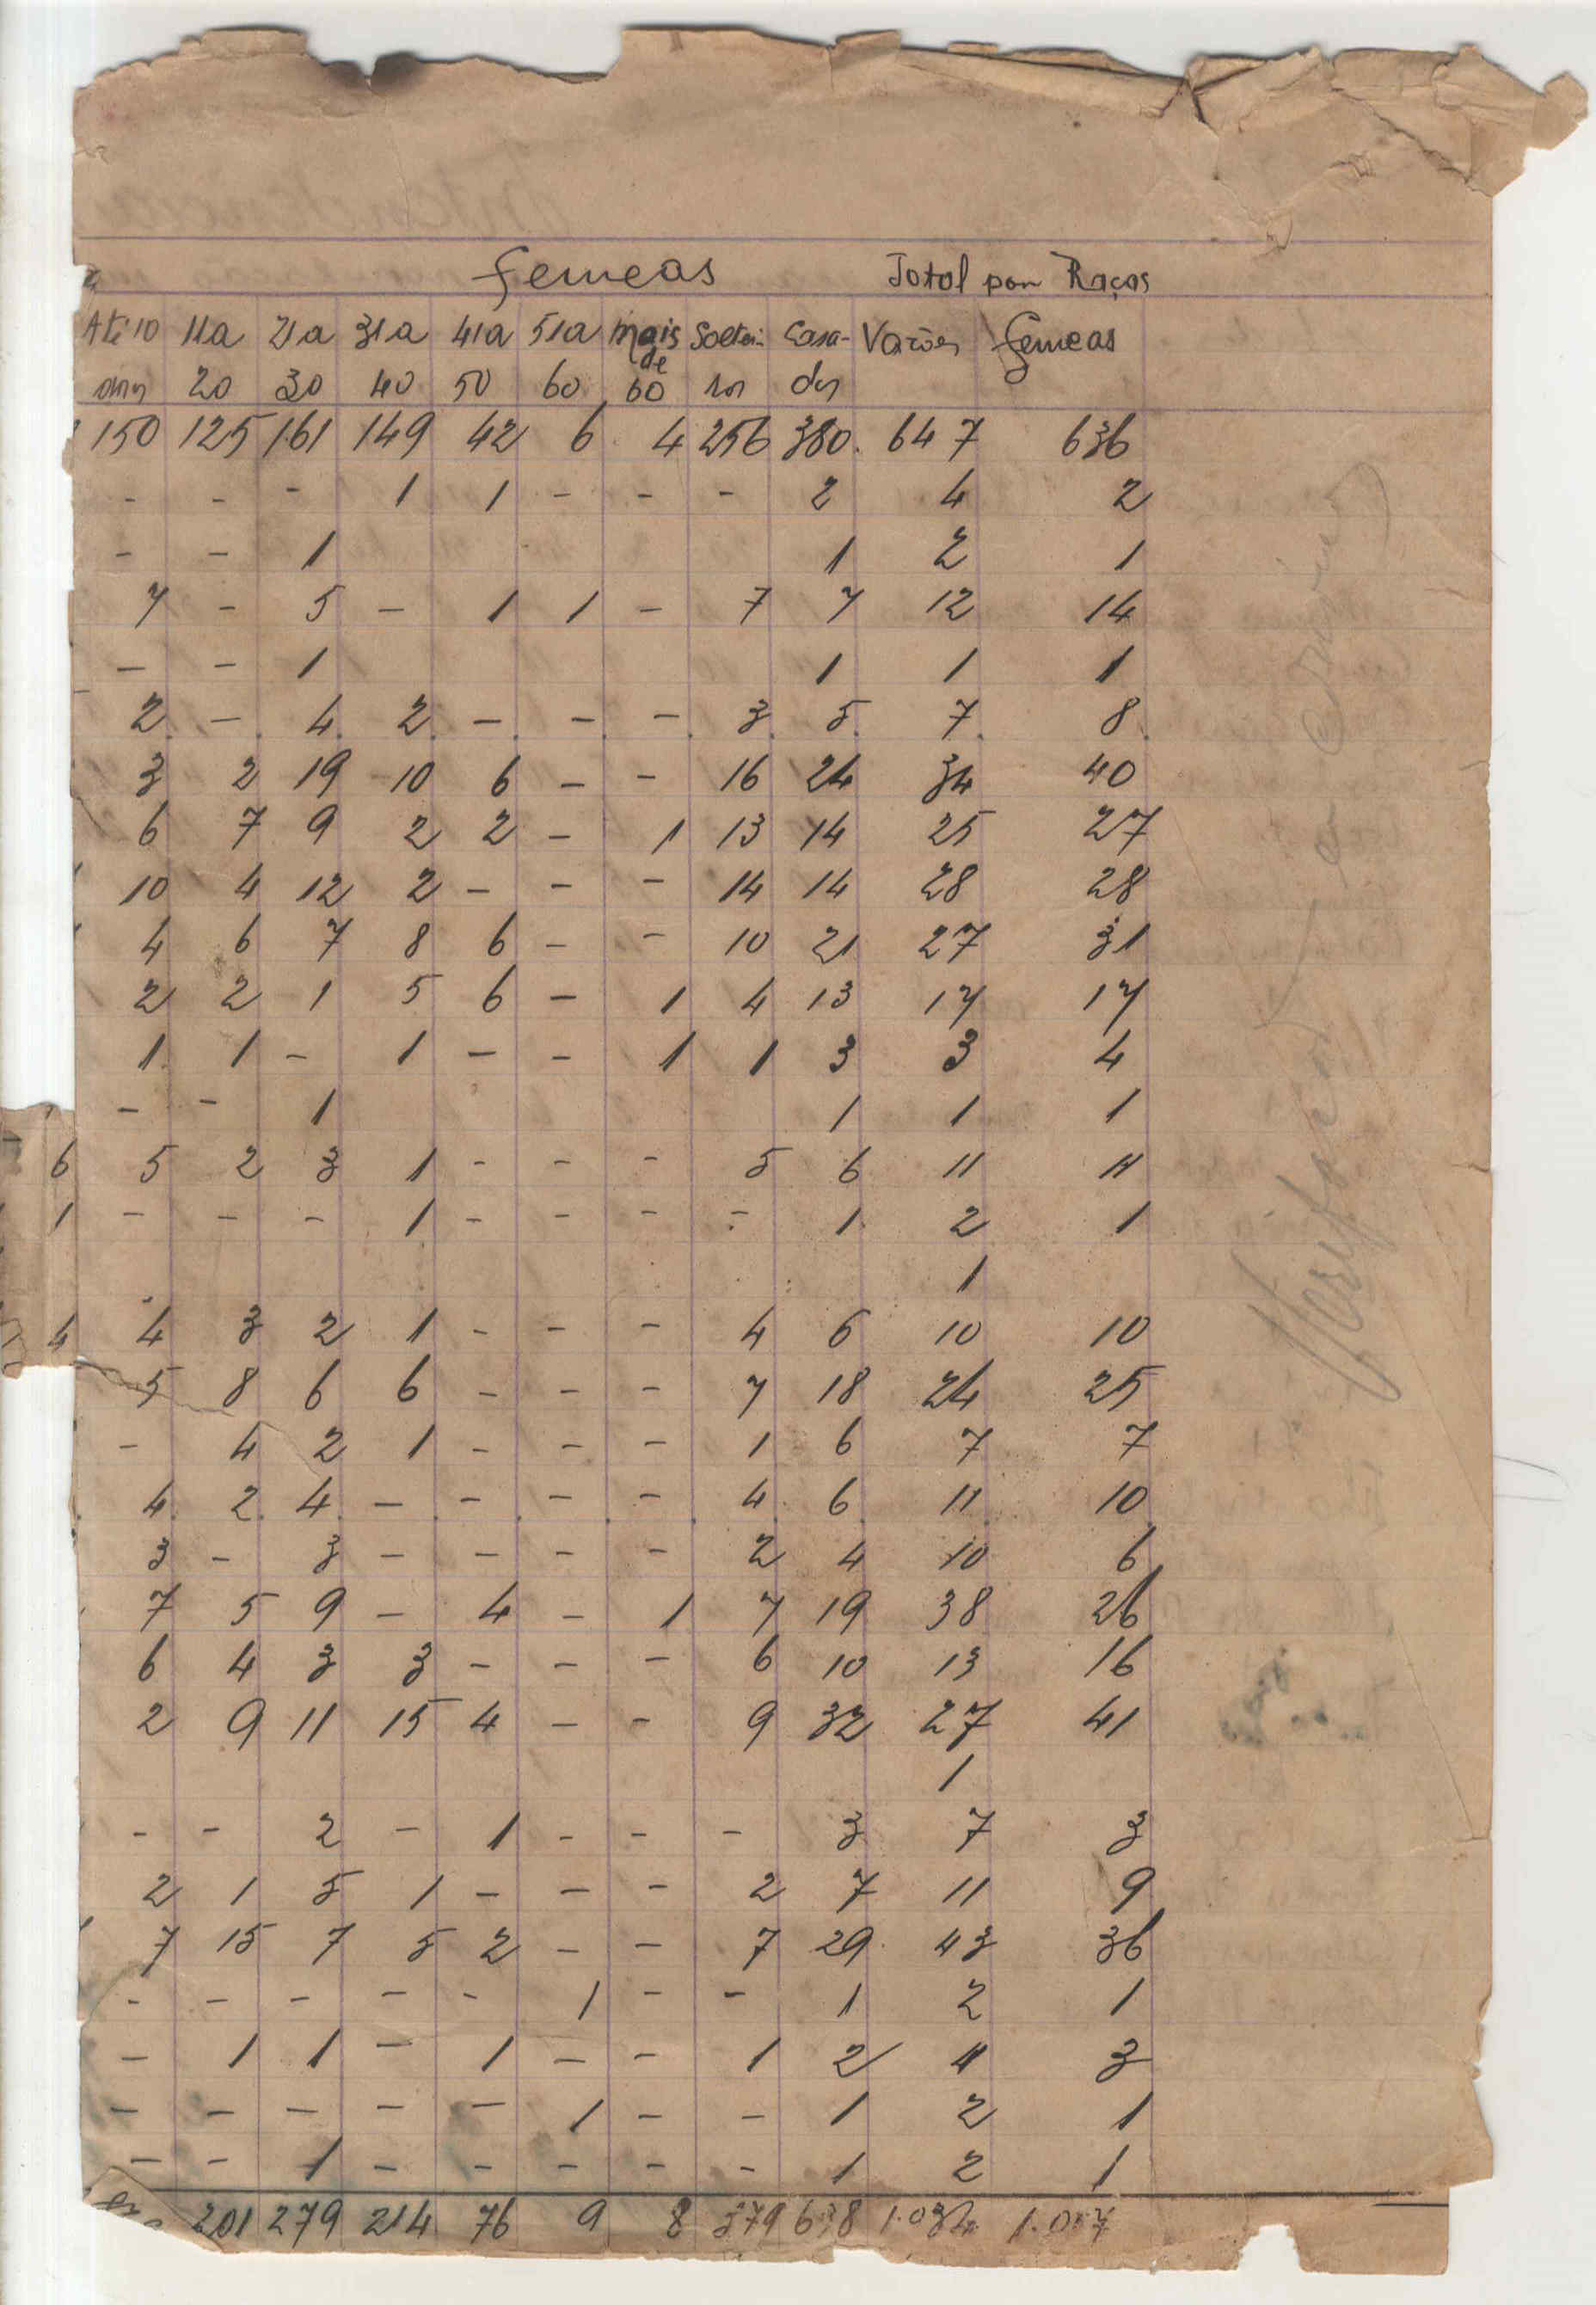 Femeas Total por Raças
Até 10 11 a 21 a 31 a 41 a 51 a Mais de Soltei- Casa- Varões Femeas
anos 20 30 40 50 60 60 ros dos
150 125 161 149 42 6 4 256 380 647 636
- - - 1 1 - - - 2 4 2
- - 1 1 2 1
7 - 5 - 1 1 - 7 7 12 14
- - 1 1 1 1
2 - 4 2 - - - 3 5 7 8
3 2 19 10 6 - - 16 24 34 40
6 7 9 2 2 - 1 13 14 25 27
10 4 12 2 - - - 14 14 28 28
4 6 7 8 6 - - 10 21 27 31
2 2 1 5 6 - 1 4 13 17 17
1 1 - 1 - - 1 1 3 3 4
- - 1 1 1 1
6 5 2 3 1 - - - 5 6 11 11
1 - - - 1 - - - - 1 2 1
1
4 4 3 2 1 - - - 4 6 10 10
5 8 6 6 - - - 7 18 24 25
- 4 2 1 - - - 1 6 7 7
4 2 4 - - - - 4 6 11 10
3 - 3 - - - - 2 4 10 6
7 5 9 - 4 - 1 7 19 38 26
6 4 3 3 - - - 6 10 13 16
2 9 11 15 4 - - 9 32 27 41
1
- - 2 - 1 - - - 3 7 3
2 1 5 1 - - - 2 7 11 9
7 15 7 5 2 - - 7 29 43 36
- - - - - 1 - - 1 2 1
- 1 1 - 1 - - 1 2 4 3
- - - - - 1 - - 1 2 1
- - 1 - - - - - 1 2 1
201 279 214 76 9 8 379 638 1.034 1.017